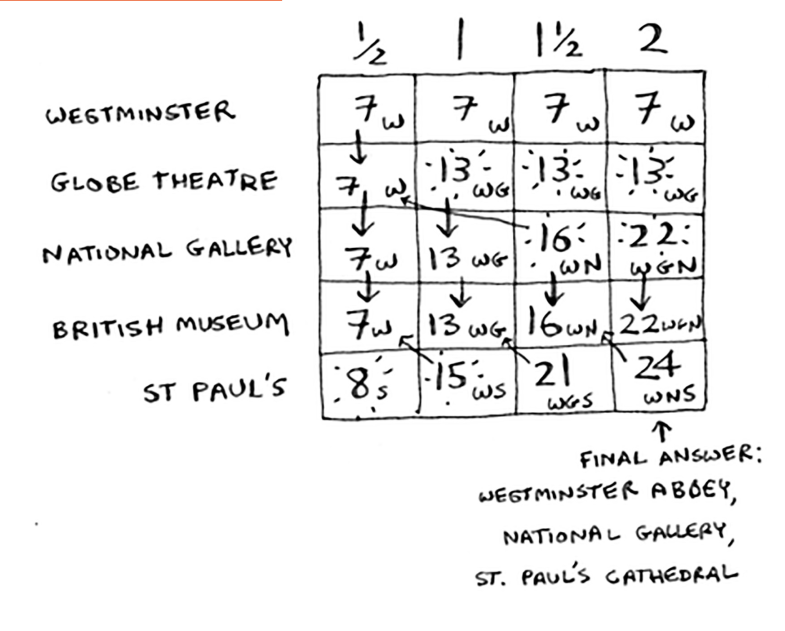 1/2 1 1 1/2 2
WESTMINSTER 7 W 7 W 7 W 7 W
GLOBE THEATRE 7 W 13 WG 13 WG 13 WG
NATIONAL GALLERY 7 W 13 WG 16 WN 22 WGN
BRITISH MUSEUM 7 W 13 WG 16 WN 22 WGN
ST PAUL'S 8 S 15 WS 21 WGS 24 WNS
FINAL ANSWER:
WESTMINSTER ABBEY,
NATIONAL GALLERY,
ST. PAUL'S CATHEDRAL